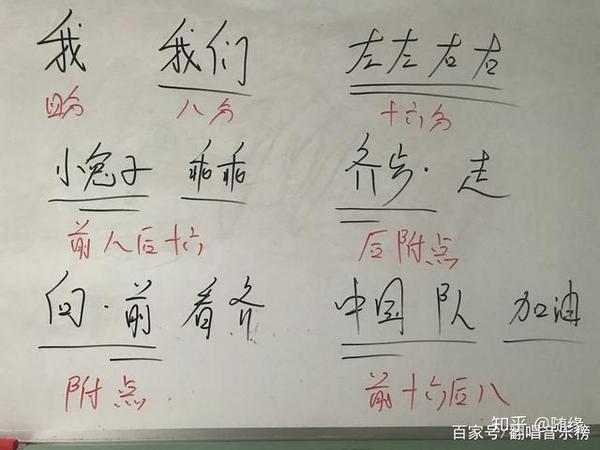 我 我们 左左右右
四分 八分 十六分
小兔子 乖乖 齐步·走
前八后十六 后附点
向·前看齐 中国队 加油
附点 前十六后八
知乎 @随缘
百家号/翻唱音乐榜